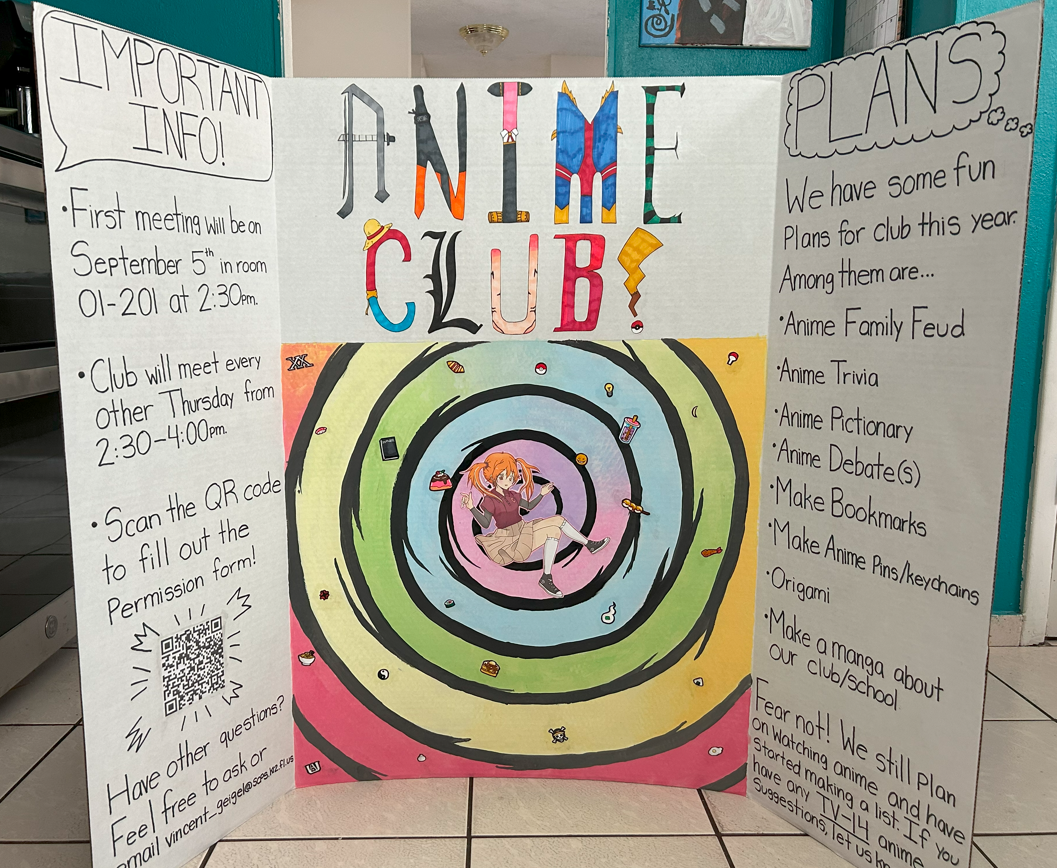 IMPORTANT
INFO!
·First meeting will be on
September 5th in room
01-201 at 2:30pm.
·Club will meet every
other Thursday from
2:30-4:00pm.
·Scan the QR code
to fill out the
Permission form!
Have other questions?
Feel free to ask or
email vincent_geigel@scps.k12.fl.us
ANIME
CLUB!
PLANS
We have some fun
Plans for club this year.
Among them are...
·Anime Family Feud
·Anime Trivia
·Anime Pictionary
·Anime Debate(s)
·Make Bookmarks
·Make Anime Pins/keychains
·Origami
·Make a manga about
our club/school
Fear not! We still plan
on watching anime and have
started making a list. If you
have any TV-14 anime
suggestions, let us